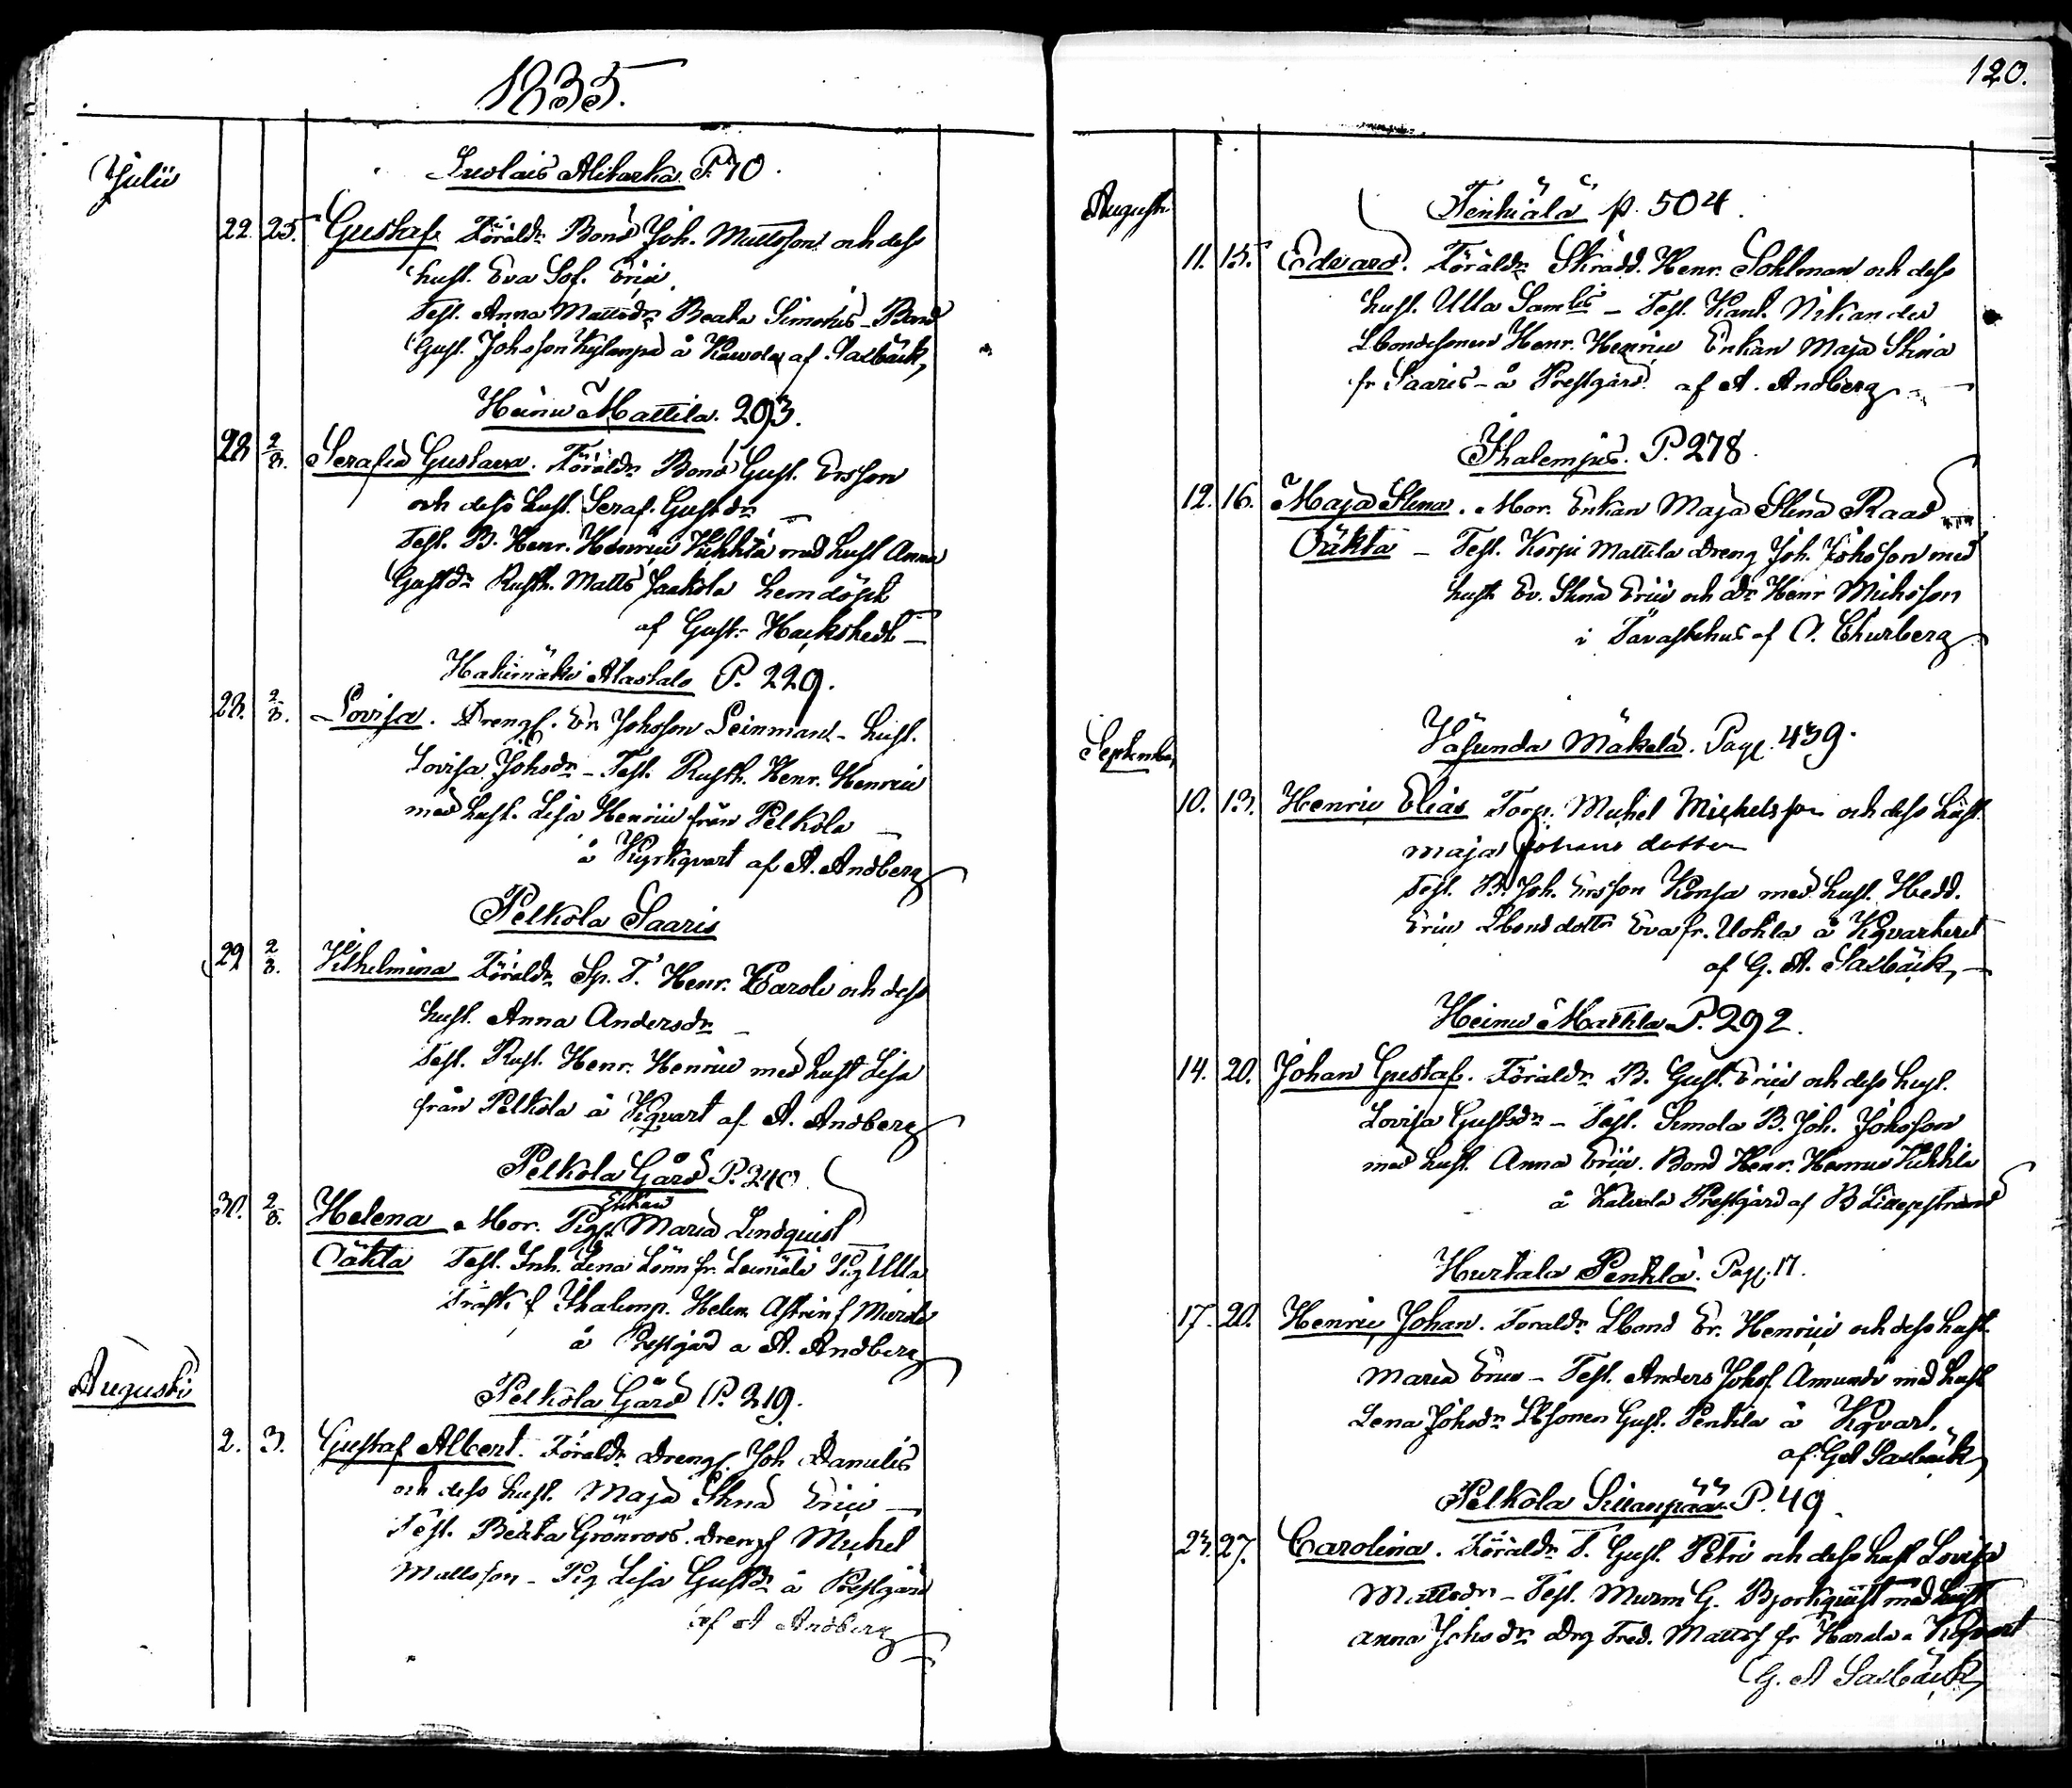 1835.
Julii
Alikarka P. 70.
22. 25. Gustaf. Föräldr Bond Joh. Mattsson och dess
hust. Eva Sof. Erici
Test. Anna Mattsdr Beata Simonis - Bond
Gust. Johsson Kylanpä å af Saxbäck
Heinu Mattila. 293.
28 2/8. Serafia Gustava. Föräldr Bond Gust. Ersson
och dess hust. Seraf. Gustdr
Test. B. Henr. Henrici med hust Anna
Gustdr Rusth. Matts Jaakola hemdöpt
af Gust. Hackstedt
Hakimäki Alastalo P. 229.
28. 2/8. Lovisa. Drengs. Er. Johsson Leinman - hust.
Lovisa Johsdr - Test. Rusth. Henr. Henrici
med hust. Lisa Henrici från Pelkola
å Kyrkqvart af A. Andberg
Pelkola Saaris
29 2/8. Vilhelmina Föräldr Sp. T. Henr. Karoli och dess
hust. Anna Andersdr
Test. Rust. Henr. Henrici med hust Lisa
från Pelkola å Kqvart af A. Andberg
Pelkola Gård P. 240
Enkan
30. 2/8. Helena. Mor. Pigs. Maria Lindquist
Oäkta Test. Inh. Lena Lönn fr. Pig Ulla
Träsk f Ihalemp. Helen. f
å Prestgård a A. Andberg
Augusti
Pelkola Gård P. 219.
2. 3. Gustaf Albert. Föräldr Drengs. Joh Danielis
och dess hust. Maja Stina Erici
Test. Beata Grönroos. Drengs Michel
Mattsson - Pig Lisa Gustdr å Prestgård
af A Andberg
120.
Augusti
Tenhiälä p. 504.
11. 15. Edvard. Föräldr Skrädd. Henr. Sohlman och dess
hust. Ulla Samlis - Test. Kant. Nikander
Lbondesonen Henr. Henrici Enkan Maja Stina
fr Saaris - å Prestgård. af A. Andberg
Ihalempis. P. 278.
12. 16. Maja Stina. Mor. Enkan Maja Stina Raad
Oäkta - Test. Korpi Mattila Dreng Joh. Johsson med
hust Ev. Stina Erici och Dr Henr Michsson
i Tavastehus af O. Churberg
September
Väsunda Mäkelä. Pag. 439.
10. 13. Henric Elias Torp. Michel Michelsson och dess hust.
Maja Johans dotter
Test. B. Joh. Ersson Konsa med hust. Hedd.
Erici Lbond dottr Eva fr. Uotila å Kqvarteret
af G. A. Saxbäck
Heinu Mattila P. 292.
14. 20. Johan Gustaf. Föräldr B. Gust. Erici och dess hust.
Lovisa Gustsdr - Test. Simola B. Joh. Johsson
med hust. Anna Erici. Bond Henr. Henrici
å Kalvola Prestgård af B
Hurtala Penttilä. Pag. 17.
17. 20. Henric Johan. Föräldr Lbond Er. Henrici och dess hust.
Maria Erici - Test. Anders Johss. Amundi med hust
Lena Johsdr Lbsonen Gust. Penttila å Kqvart.
af Gst Saxbäck
Pelkola Sillanpää P. 49
23. 27. Carolina. Föräldr T. Gust. Petri och dess hust Lovisa
Mattsdr - Test. Murm G. Bjorkquist med hust
Anna Johsdr Drg Fred. Mattss fr Harala a Kqvart
G. A Saxbäck